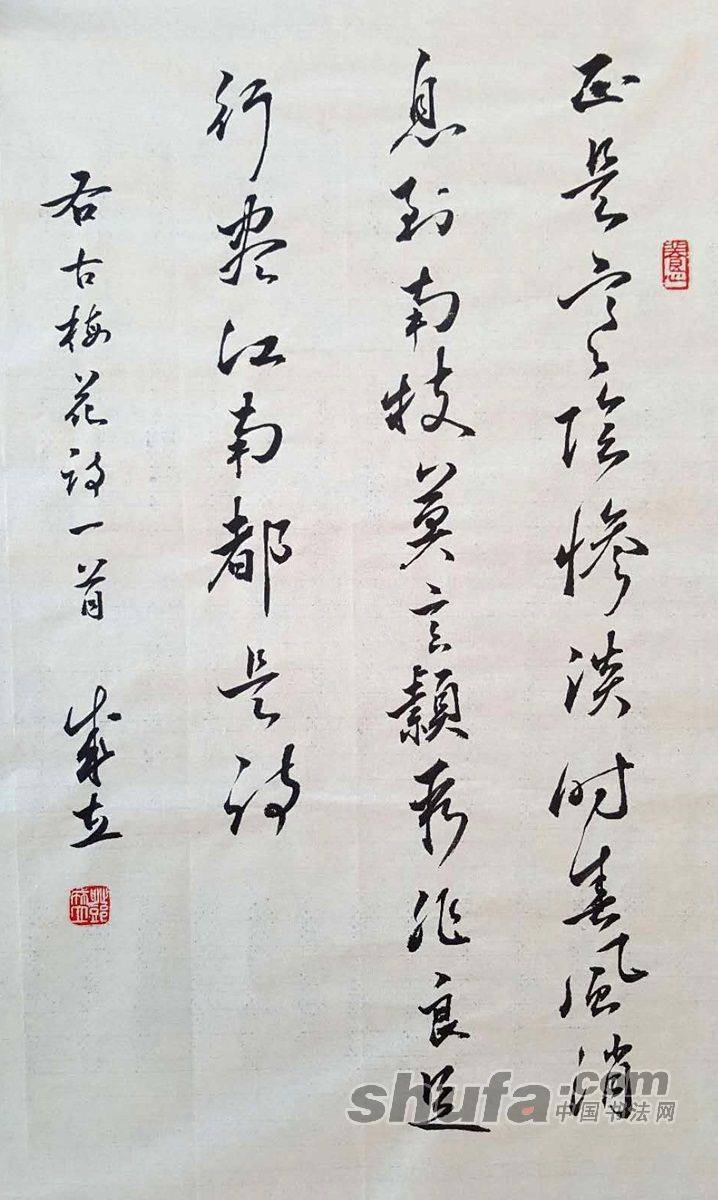 正是寒陰惨淡时春風消
息到南枝莫言非良
行尽江南都是诗
右古梅花诗一首
shufa.com
中国书法网